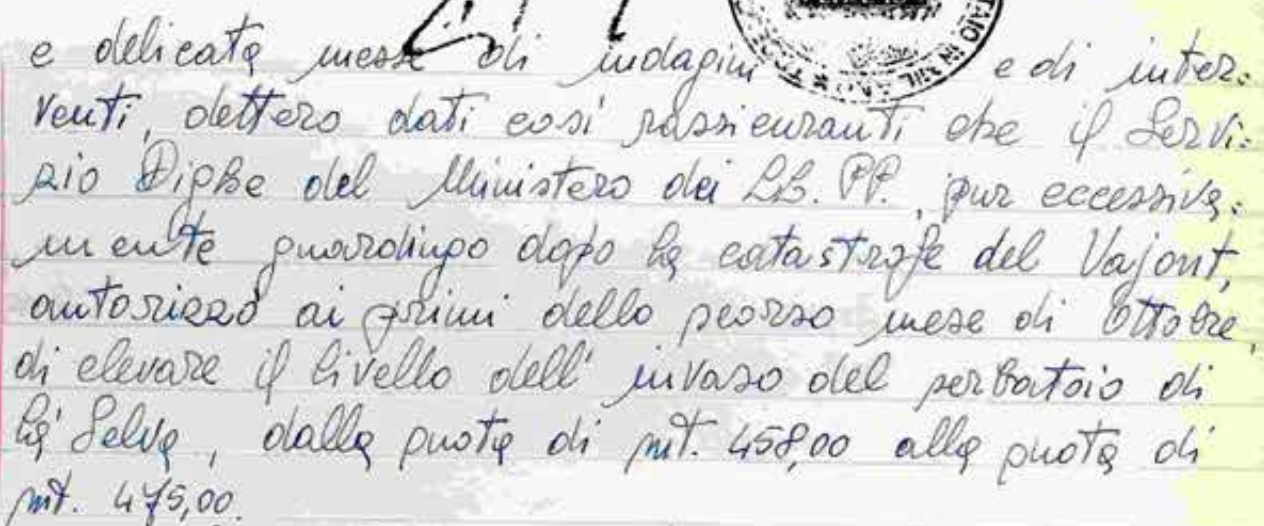 TAIO IN
e delicata messe di indagini e di inter=
venti, dettero dati così rassicuranti che il Servi=
zio Dighe del Ministero dei LL. PP., pur eccessiva=
mente guardingo dopo la catastrofe del Vajont,
autorizzò ai primi dello scorso mese di Ottobre,
di elevare il livello dell' invaso del serbatoio di
Cà Selva, dalla quota di mt. 458,00 alla quota di
mt. 475,00.